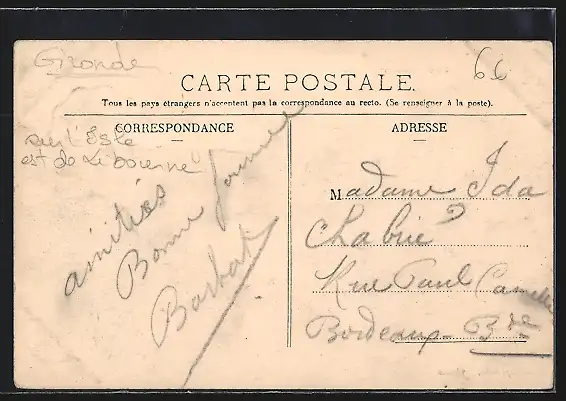 Gironde
66
CARTE POSTALE.
Tous les pays étrangers n'acceptent pas la correspondance au recto. (Se renseigner à la poste).
CORRESPONDANCE
ADRESSE
sur l'Isle
est de Libourne
amitiés
Bonne
Madame Ida
Rue Paul Camelle
Bordeaux-Bde